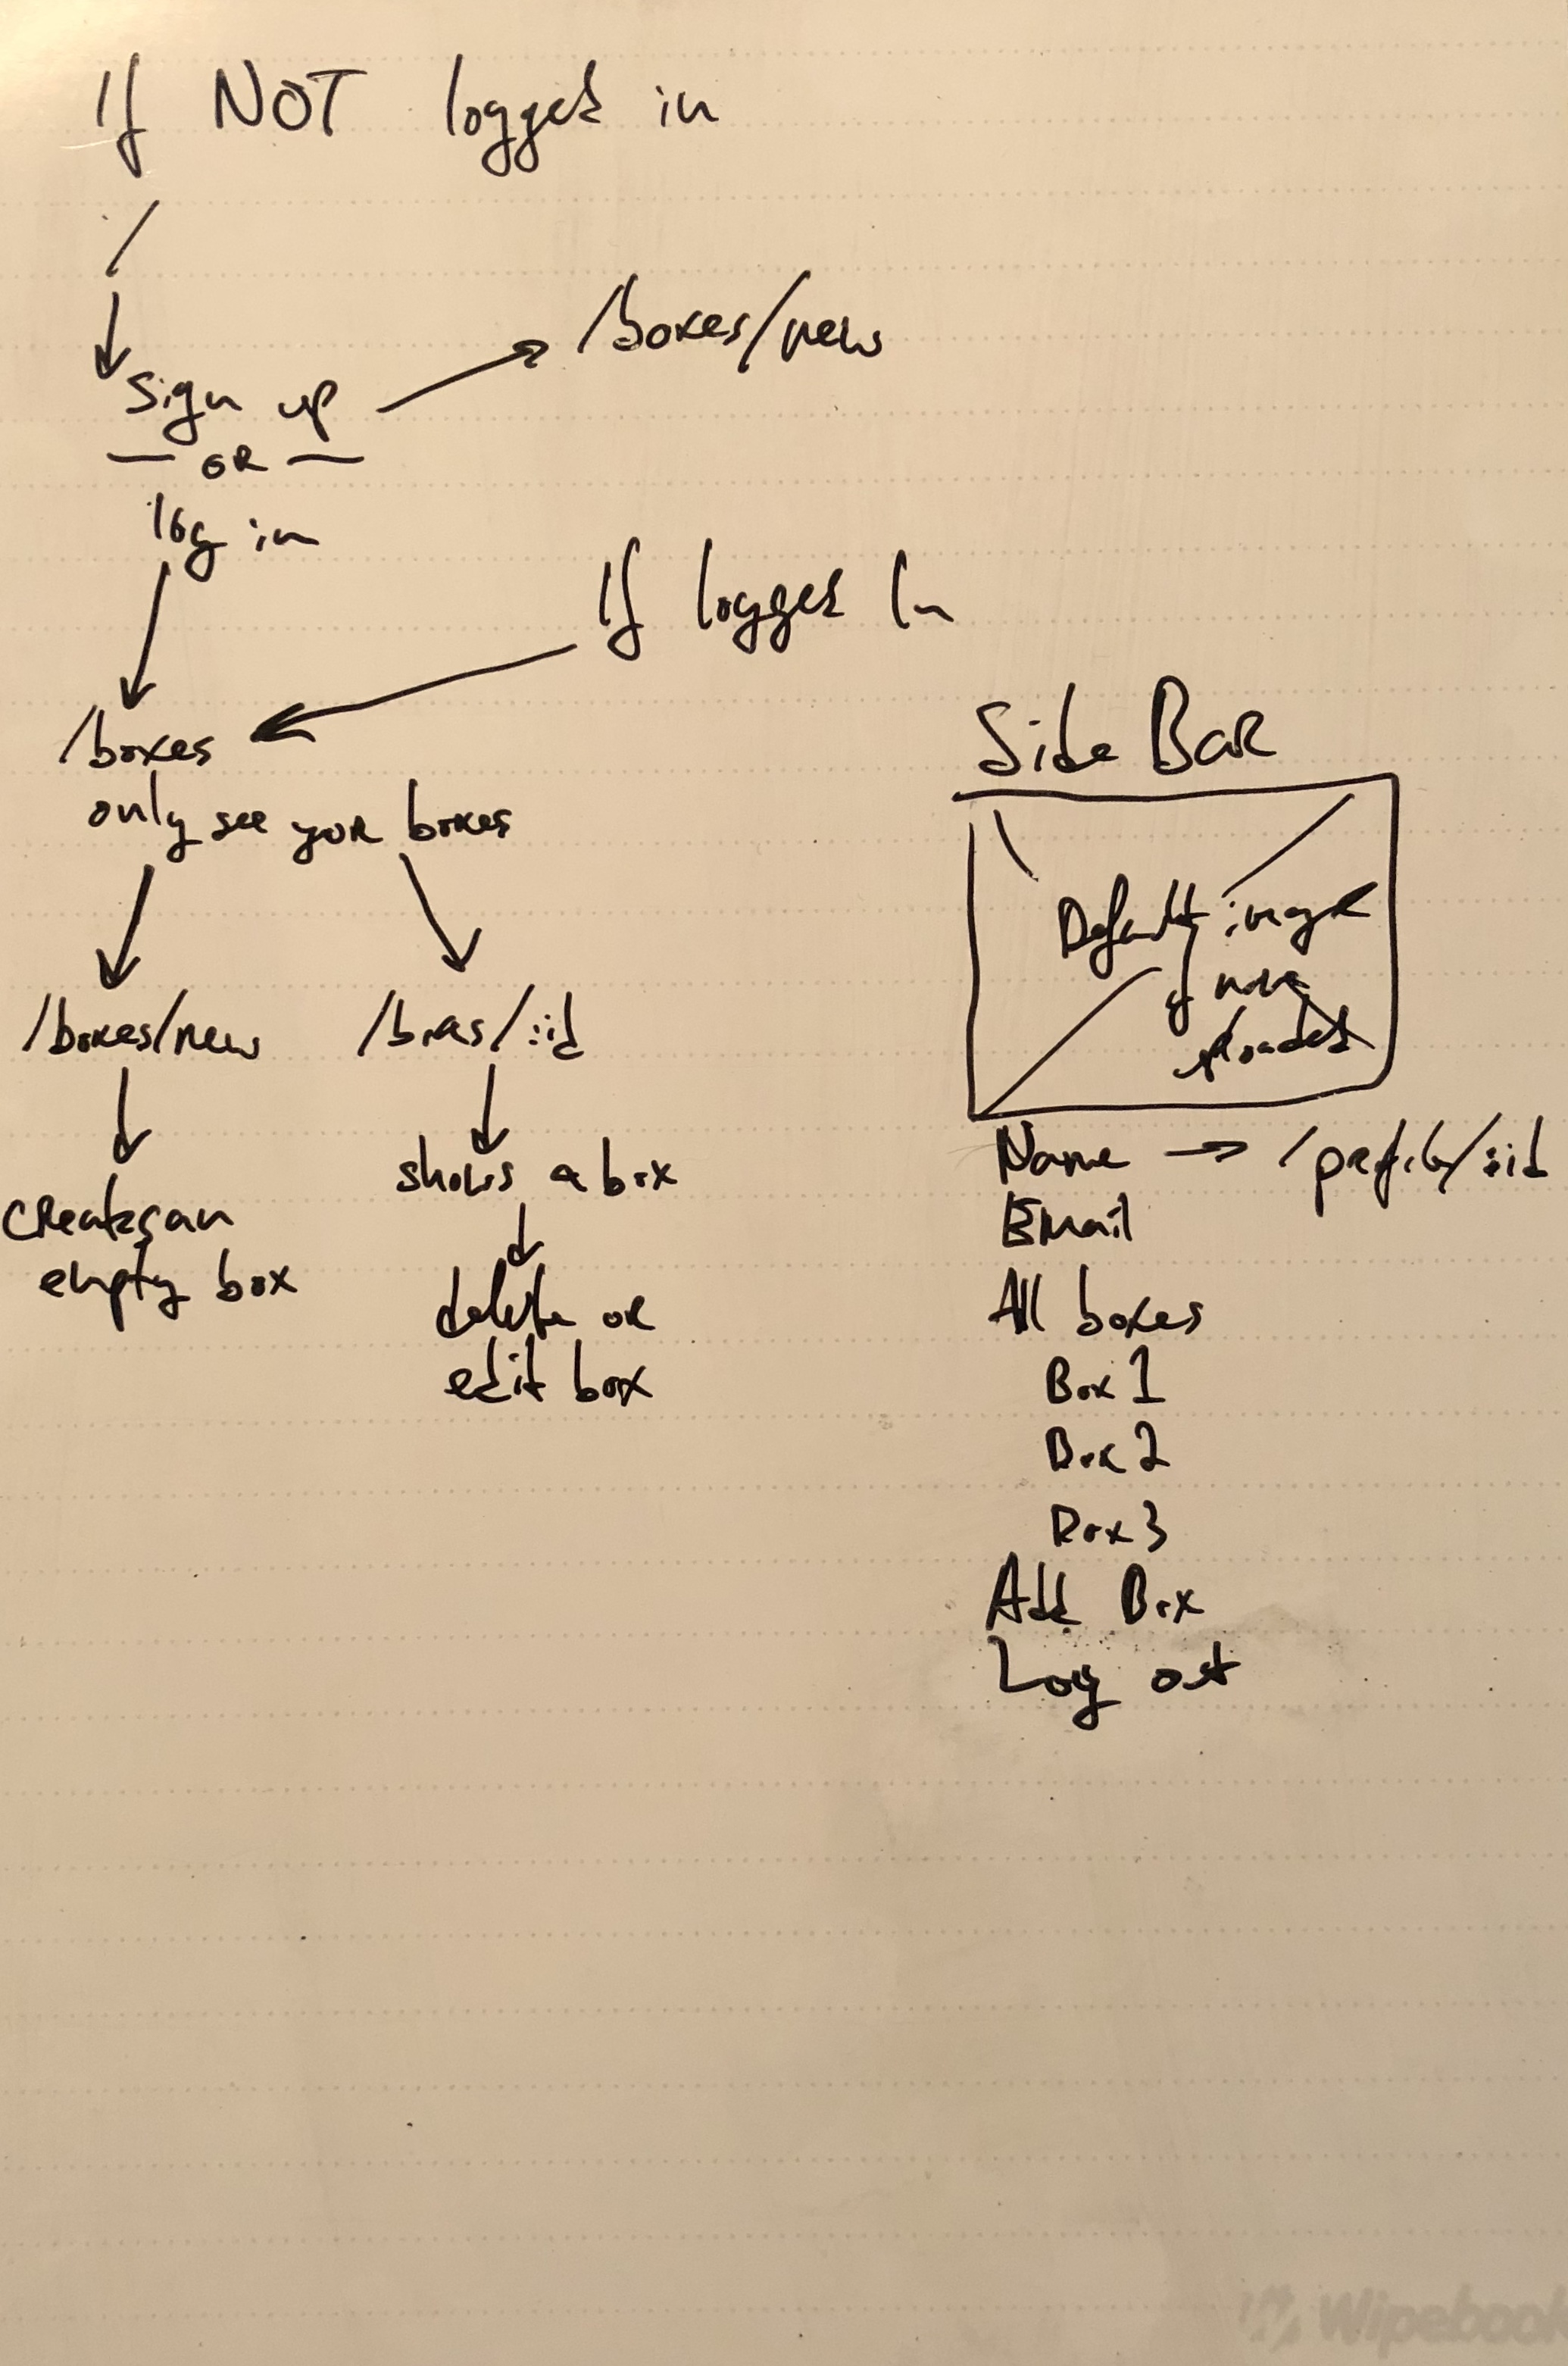 If NOT logged in
/
Sign up
/boxes/new
OR
log in
If logged In
/boxes
only see your boxes
/boxes/new
creates an
empty box
/boxes/:id
shows a box
delete or
edit box
Side Bar
Default image
if none
uploaded
Name → /profile/:id
Email
All boxes
Box 1
Box 2
Box 3
Add Box
Log out
Wipebook